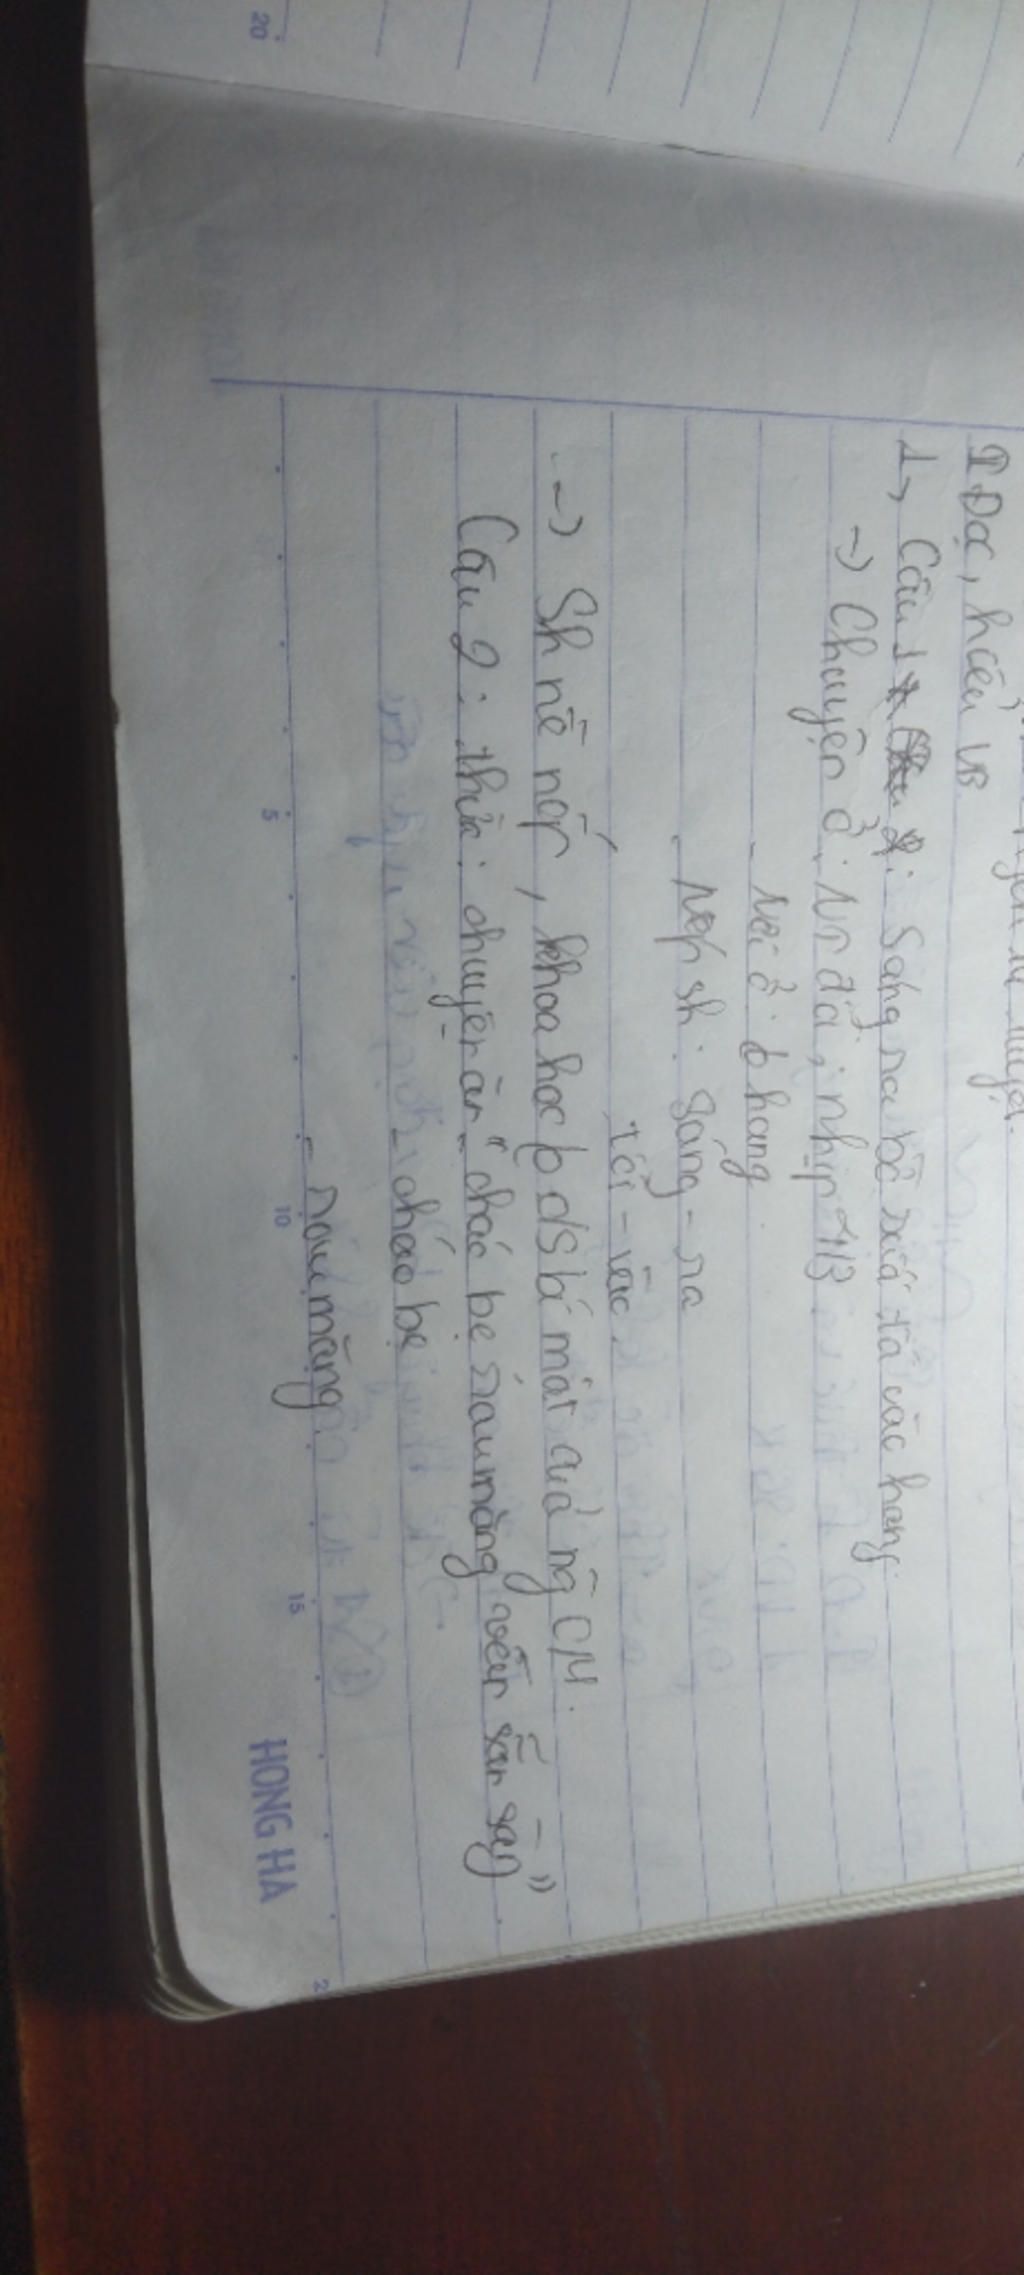 I Đọc, hiểu VB
1, Câu 1: Sáng ra bờ suối tối vào hang
-> Chuyện ở: NT đối, nhịp 4/3
- Nơi ở: hang
- Nếp sh: Sáng - ra
tối - vào
-> Sh nề nếp, khoa học, bí mật của ng CM.
Câu 2: thức: chuyện ăn "cháo bẹ rau măng vẫn sẵn sàng"
- cháo bẹ
- rau măng
5
10
15
2
20
HONG HA